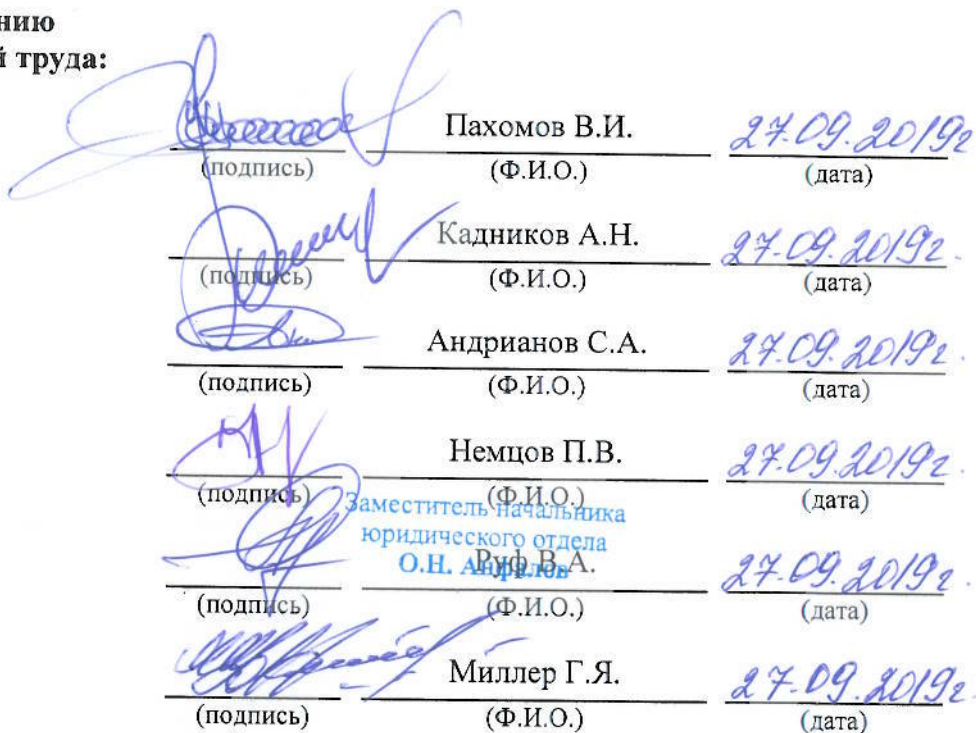 нию
й труда:
Пахомов В.И. 27.09.2019г
(подпись) (Ф.И.О.) (дата)
Кадников А.Н. 27.09.2019г.
(подпись) (Ф.И.О.) (дата)
Андрианов С.А. 27.09.2019г.
(подпись) (Ф.И.О.) (дата)
Немцов П.В. 27.09.2019г.
(подпись) (Ф.И.О.) (дата)
Заместитель начальника
юридического отдела
О.Н.
Руф В.А. 27.09.2019г.
(подпись) (Ф.И.О.) (дата)
Миллер Г.Я. 27.09.2019г.
(подпись) (Ф.И.О.) (дата)